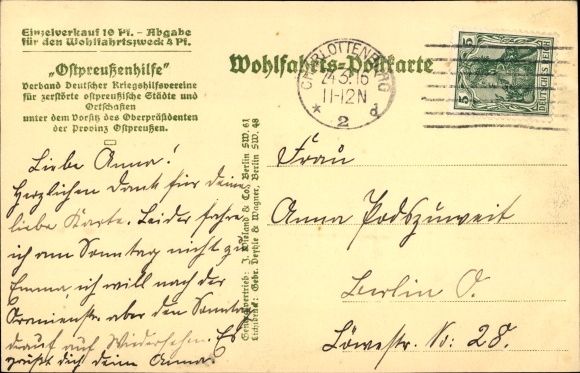 Einzelverkauf 10 Pf. – Abgabe
für den Wohlfahrtszweck 4 Pf.
„Ostpreußenhilfe"
Verband Deutscher Kriegshilfsvereine
für zerstörte ostpreußische Städte und
Ortschaften
unter dem Vorsitz des Oberpräsidenten
der Provinz Ostpreußen.
Wohlfahrts-Postkarte
CHARLOTTENBURG
24.3.16
11-12N
* 2 d
5 5
DEUTSCHES REICH
Liebe Anna!
Herzlichen Dank für deine
liebe Karte. Leider fahre
ich am Sonntag nicht zu
Emma ich will nach der
Oranienstr. aber den Sonntag
darauf auf Wiedersehn. Es
grüßt dich deine Anna.
Generalvertrieb: J. & Co., Berlin SW. 61
Lichtdruck: Gebr. & Wagner, Berlin SW. 48
Frau
Anna Podszuweit
Berlin O.
Löwestr. No: 28.